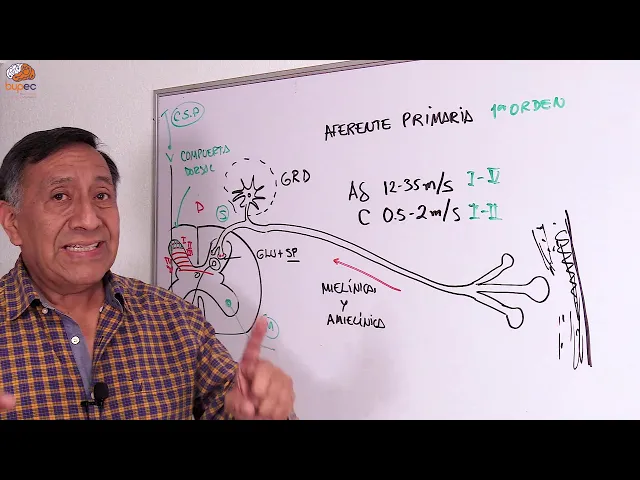 bupec
C.S.P
AFERENTE PRIMARIA 1ª ORDEN
COMPUERTA
DORSAL
GRD
Aδ 12-35 m/s I-V
C 0.5-2 m/s I-II
D
S
GLU + SP
MIELÍNICA
Y
AMIELÍNICA